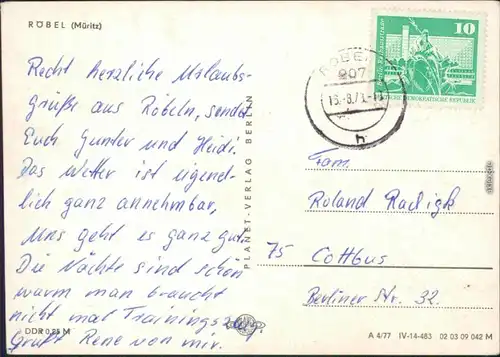 RÖBEL (Müritz)
Recht herzliche Urlaubs-
grüße aus Röbeln, sendet
Euch Gunter und Heidi.
Das Wetter ist eigend-
lich ganz annehmbar,
uns geht es ganz gut.
Die Nächte sind schön
warm man braucht
nicht mal Trainingszeug.
Grüßt Rene von mir.
DDR 0,25 M
PLANET-VERLAG BERLIN
10
DEMOKRATISCHE REPUBLIK
207
h
Fam.
Roland Radigk
75 Cottbus
Berliner Str. 32.
A 4/77 IV-14-483 02 03 09 042 M